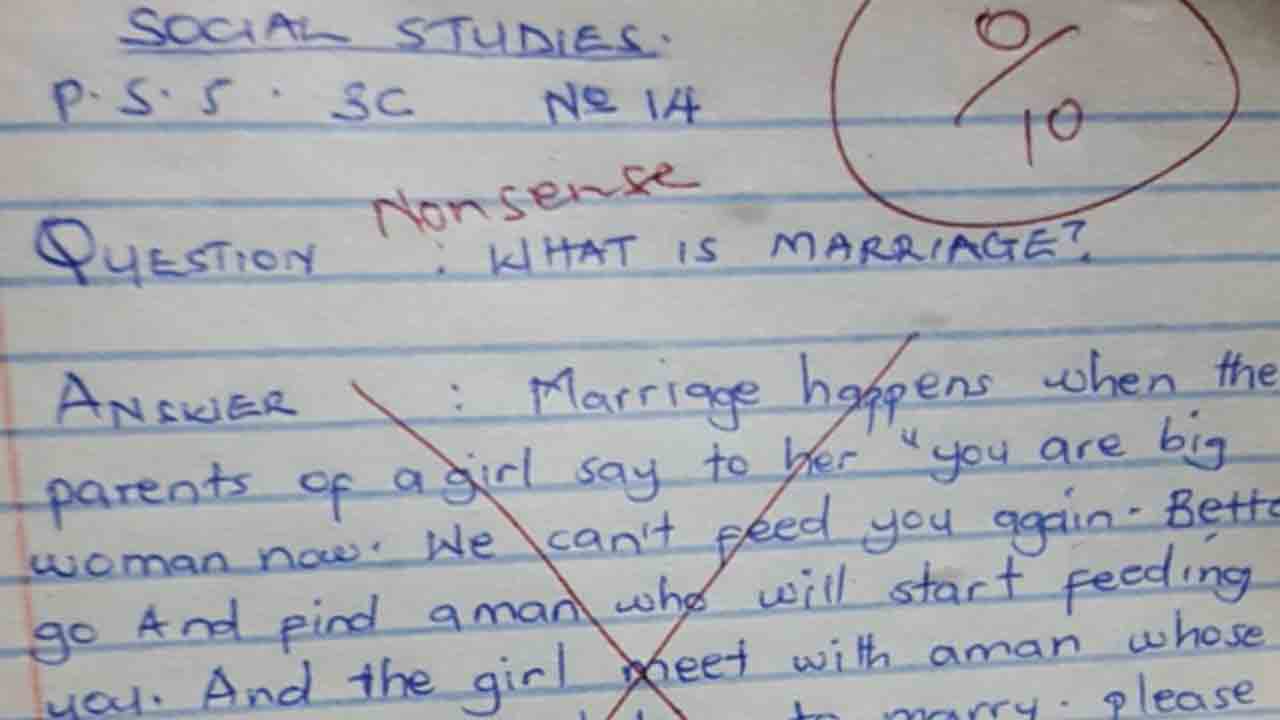 SOCIAL STUDIES.
P.S.5. SC No 14
0/10
Nonsense
QUESTION : WHAT IS MARRIAGE?
ANSWER : Marriage happens when the
parents of a girl say to her "you are big
woman now. We can't feed you again. Bette
go And find aman who will start feeding
you. And the girl meet with aman whose
to marry. please